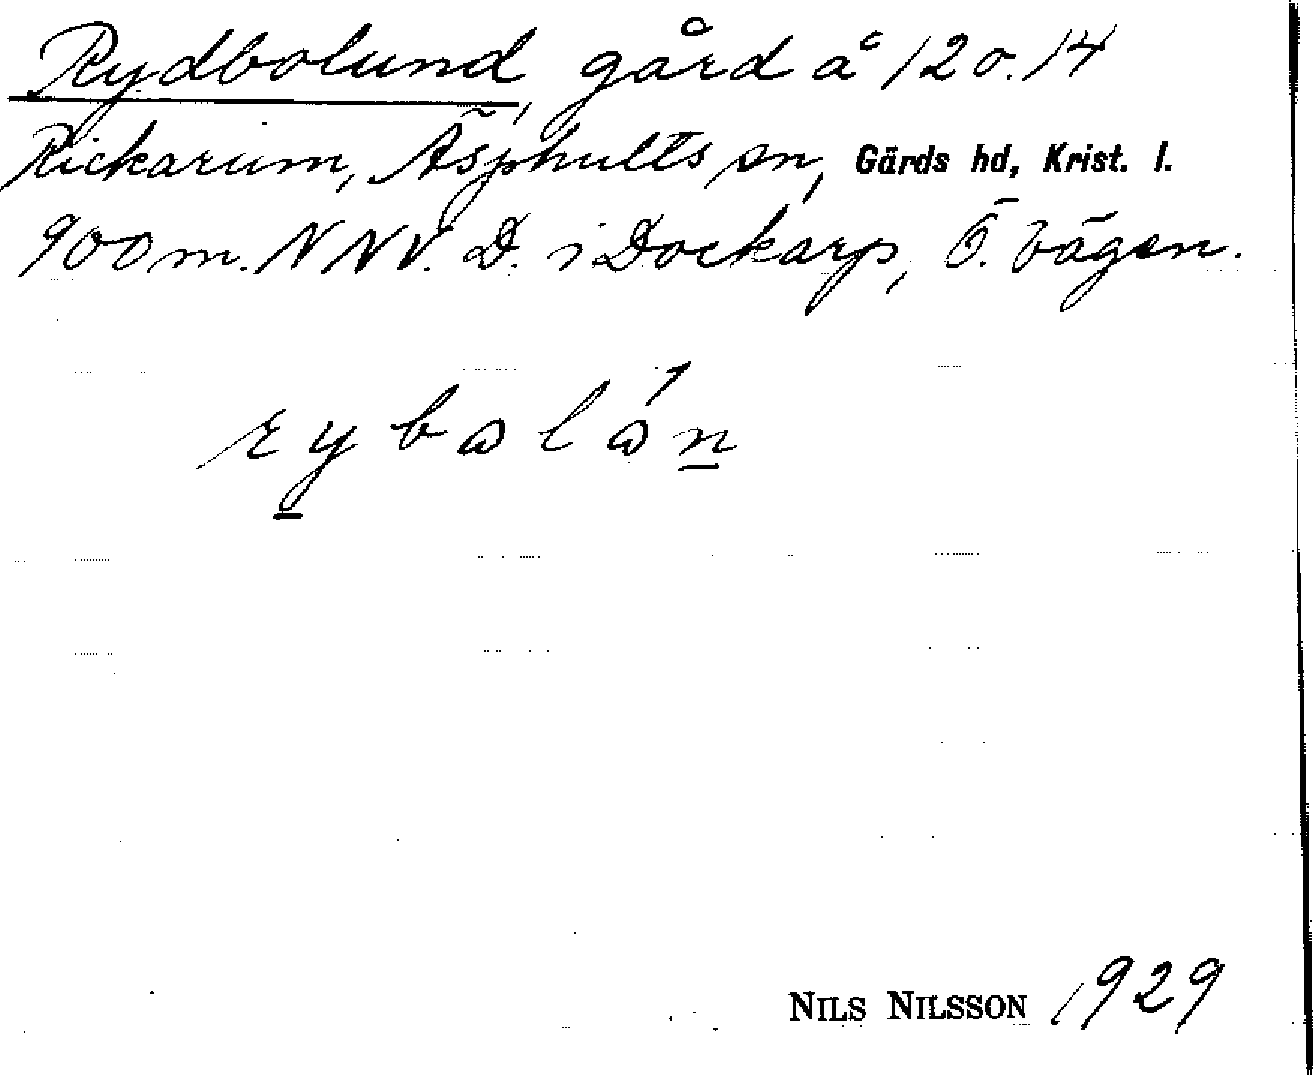 Rydbolund, gård å 12 o. 14
Rickarum, Äsphults sn, Gärds hd, Krist. l.
900 m. NNV. D. i Dockarp, Ö. vägen.
rybolón
NILS NILSSON 1929